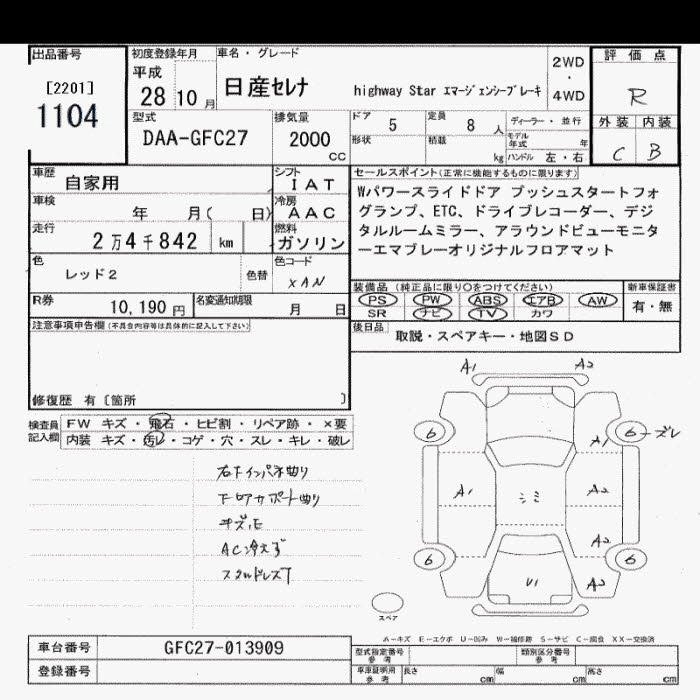 出品番号
[2201]
1104
初度登録年月
平成
28 10 月
車名・グレード
日産セレナ highway Star エマージェンシーブレーキ
2WD
・
4WD
評価点
R
外装 内装
C B
型式
DAA-GFC27
排気量
2000
CC
ドア 5
定員 8 人
形状
積載 kg
ディーラー・並行
モデル年式 年
ハンドル 左・右
車歴
自家用
シフト
IAT
車検
年 月( 日)
冷房
AAC
走行
2万4千842 km
燃料
ガソリン
色
レッド2
色替
色コード
XAN
R券
10,190 円
名変通知期限
月 日
セールスポイント(正常に機能するものに限ります)
Wパワースライドドア プッシュスタートフォ
グランプ、ETC、ドライブレコーダー、デジ
タルルームミラー、アラウンドビューモニタ
ーエマブレーオリジナルフロアマット
装備品(純正品に限り○をつけてください)
PS PW ABS エアB AW
SR ナビ TV カワ
新車保証書
有・無
後日品
取説・スペアキー・地図SD
注意事項申告欄(不具合内容等は具体的に記入して下さい)
修復歴 有〔箇所 〕
検査員
記入欄
FW キズ・飛石・ヒビ割・リペア跡・×要
内装 キズ・汚レ・コゲ・穴・スレ・キレ・破レ
右Fインパネ曲り
フロアサポート曲り
AC冷えず
A1 A2
6 6 ズレ
A1
A1 シミ A2
A2
6 6
U1 A2
スペア
A-キズ E-エクボ U-凹み W-補修跡 S-サビ C-腐食 XX-交換済
車台番号
GFC27-013909
登録番号
型式指定番号
参考
類別区分番号
参考
車庫証明用
参考
長さ cm 幅 cm 高さ cm